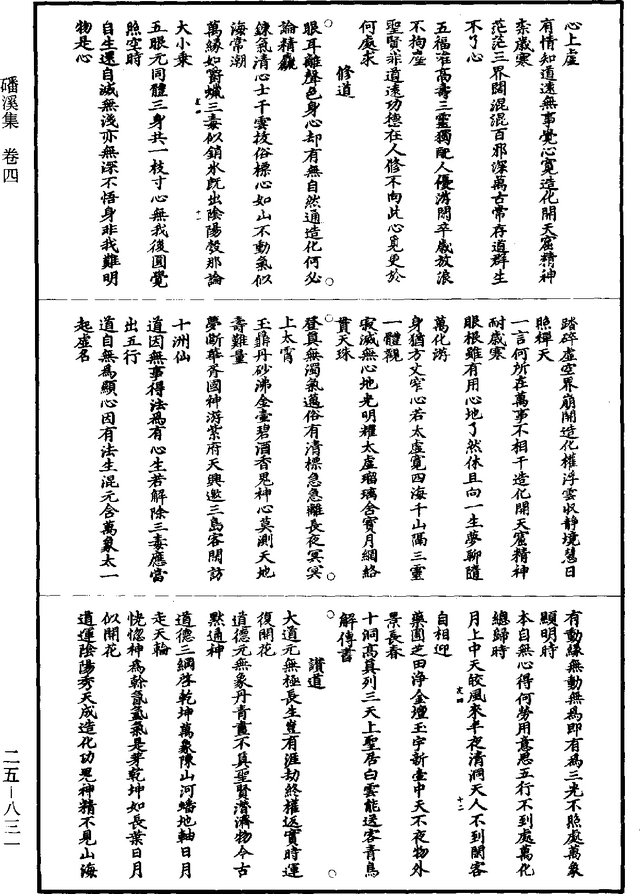 磻溪集　卷四
二五—八三一
心上虛
有情知道遠無事覺心寬造化開天窟精神
柰歲寒
茫茫三界闊混混百邪深萬古常存道群生
不了心
五福唯高壽三靈獨配人優游閑卒歲放浪
不拘塵
聖賢非道遠功德在人修不向此心覓更於
何處求
修道
眼耳離聲色身心却有無自然通造化何必
論精麄
鍊氣清心士干雲拔俗標心如山不動氣似
海常潮
萬緣如嚼蠟三毒似銷氷旣出陰陽殼那論
大小乘
五眼元同體三身共一枝寸心無我後圓覺
照空時
自生還自滅無淺亦無深不悟身非我難明
物是心
踏碎虛空界崩開造化權浮雲收静境慧日
照禪天
一言何所在萬事不相干造化開天窟精神
耐歲寒
眼根雖有用心地了然休且向一生夢聊隨
萬化游
身猶方丈窄心若太虛寬四海千山隔三靈
一體觀
寂滅無心地光明耀太虛瑠璃含寶月網絡
貫天珠
登真無濁氣邁俗有清標急急離長夜冥冥
上太霄
玉鼎丹砂沸金臺碧酒香鬼神心莫測天地
壽難量
夢斷華胥國神游紫府天興邀三島客閑訪
十洲仙
道因無事得法爲有心生若解除三毒應當
出五行
道自無爲顯心因有法生混元含萬象太一
起虛名
有動緣無動無爲即有爲三光不照處萬象
顯明時
本自無心得何勞用意思五行不到處萬化
總歸時
月上中天皎風來半夜清洞天人不到閑客
自相迎
藥圃芝田净金壇玉宇新壷中天不夜物外
景長春
十洞高真列三天上聖居白雲能送客青鳥
解傳書
讃道
大道元無極長生豈有涯劫終權返實時運
復開花
道德元無象丹青畫不真聖賢潛濟物今古
黙通神
道德三綱啓乾坤萬象陳山河蟠地軸日月
走天輪
恍惚神爲幹氤氲氣是芽乾坤如長葉日月
似開花
道運陰陽秀天成造化功鬼神精不見山海